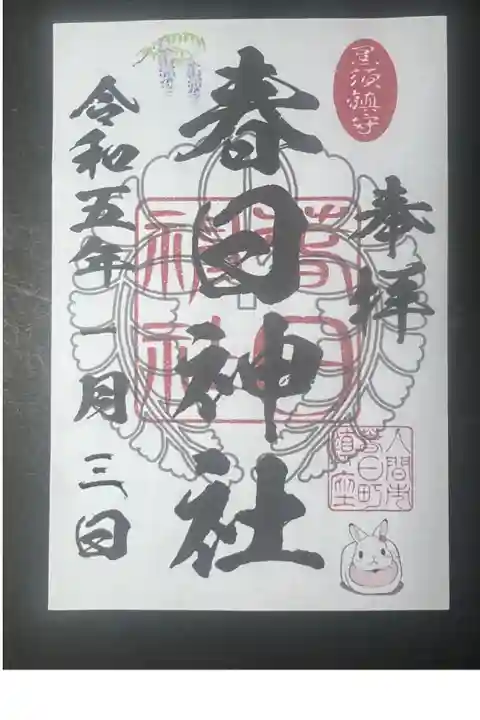 黒須鎮守
奉拝
入間市
春日町
鎮座
春日神社
春日
神社
令和五年一月三日